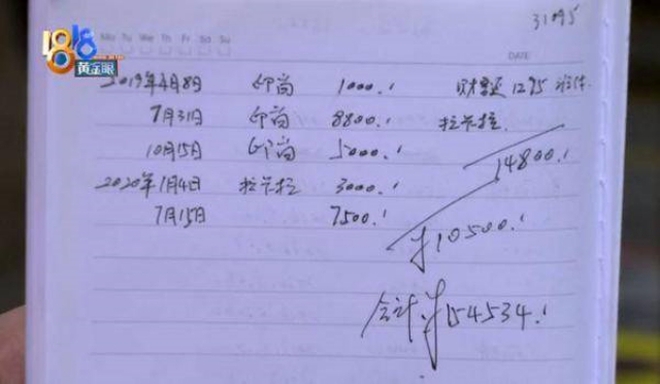 31095
1818
黄金眼
Mo Tu We Th Fr Sa Su
DATE
2019年4月8日 1000.
7月31日 8800. 拉卡拉
10月15日 5000.
14800.
2020年1月4日 拉卡拉 3000.
7月15日 7500.
¥10500.
合计 ¥54534.